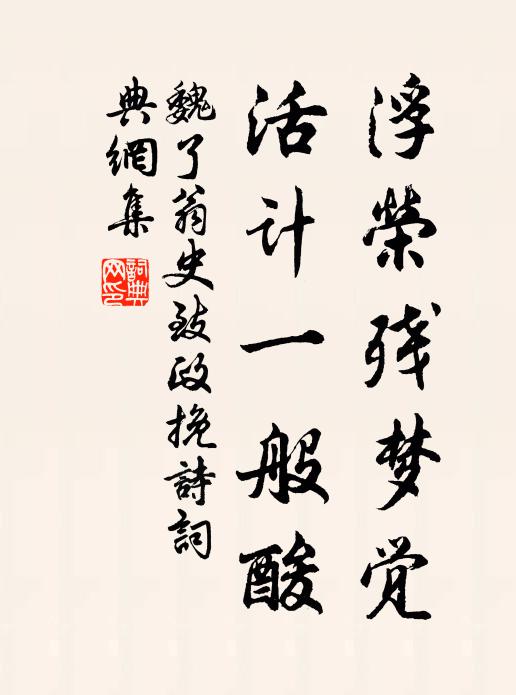 浮榮残梦觉
活计一般酸
魏了翁史致政挽詩詞
典網集
詞典
网印